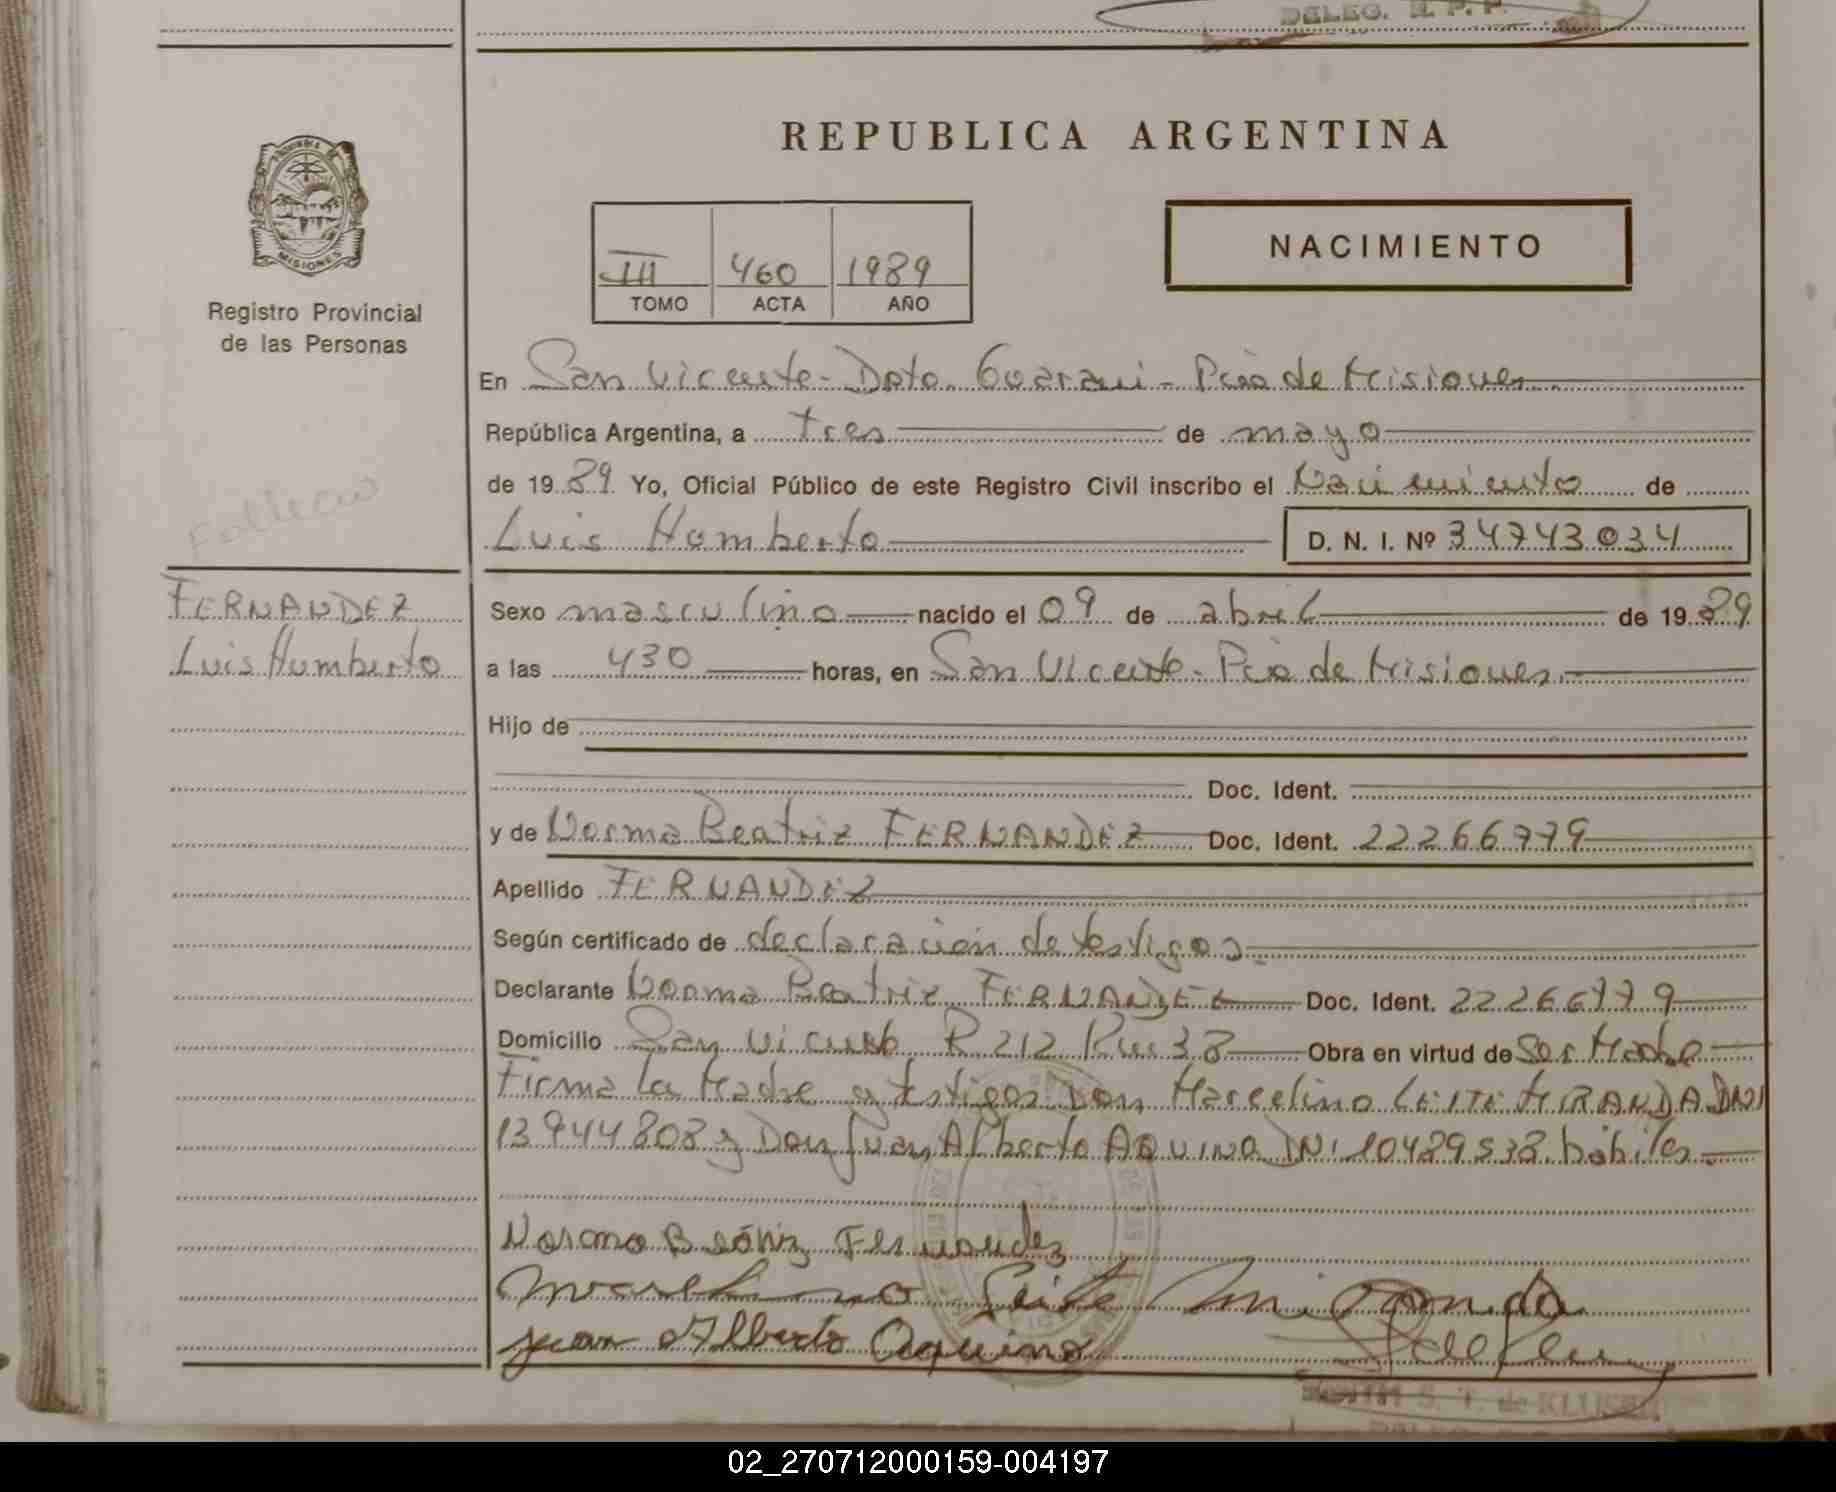 DELEG. R. P. P.
REPUBLICA ARGENTINA
PROVINCIA DE
MISIONES
Registro Provincial
de las Personas
III 460 1989
TOMO ACTA AÑO
NACIMIENTO
En San Vicente - Dpto. Guarani - Pcia de Misiones
República Argentina, a tres de mayo
de 1989 Yo, Oficial Público de este Registro Civil inscribo el Nacimiento de
Luis Humberto D. N. I. Nº 34743034
Fallecio
FERNANDEZ
Luis Humberto
Sexo masculino nacido el 09 de abril de 1989
a las 430 horas, en San Vicente - Pcia de Misiones.
Hijo de
Doc. Ident.
y de Norma Beatriz FERNANDEZ Doc. Ident. 22266779
Apellido FERNANDEZ
Según certificado de declaración de testigos.
Declarante Norma Beatriz FERNANDEZ Doc. Ident. 22266779
Domicilio San Vicente R 212 Km 38 Obra en virtud de Ser Madre
Firma la Madre y testigos: Don Marcelino LEITE MIRANDA DNI
13944808 y Don Juan Alberto AQUINO DNI 10489538 hábiles.
Norma Beatriz Fernandez
Marcelino Leite Miranda
Juan Alberto Aquino
S. T. de KLUGE
02_270712000159-004197